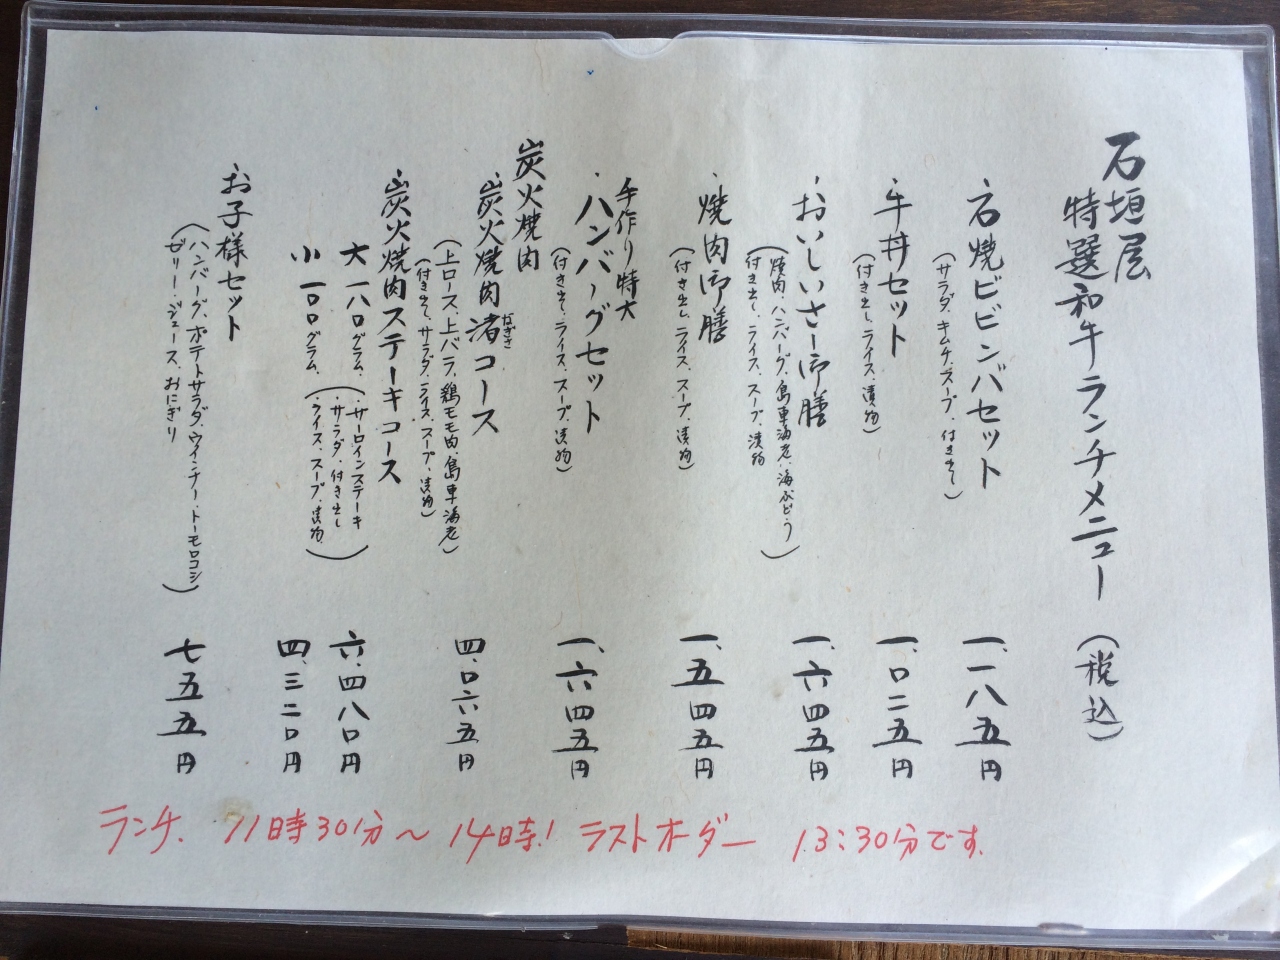 石垣屋
特選和牛ランチメニュー (税込)
・石焼ビビンバセット 一、一八五円
(サラダ、キムチ、スープ、付き出し)
・牛丼セット 一、〇二五円
(付き出し、ライス、漬物)
・おいしいさー御膳 一、六四五円
(焼肉、ハンバーグ、島車海老、海ぶどう
付き出し、ライス、スープ、漬物)
・焼肉御膳 一、五四五円
(付き出し、ライス、スープ、漬物)
手作り特大
・ハンバーグセット 一、六四五円
(付き出し、ライス、スープ、漬物)
炭火焼肉
・炭火焼肉渚コース 四、〇六五円
なぎさ
(上ロース、上バラ、鶏モモ肉、島車海老)
(付き出し、サラダ、ライス、スープ、漬物)
・炭火焼肉ステーキコース
大 一八〇グラム、 六、四八〇円
小 一〇〇グラム、 四、三二〇円
(・サーロインステーキ
・サラダ、付き出し
・ライス、スープ、漬物、)
・お子様セット 七五五円
(ハンバーグ、ポテトサラダ、ウインナー、トーモロコシ
ゼリー、ジュース、おにぎり)
ランチ、11時30分〜14時! ラストオーダー 13:30分です。